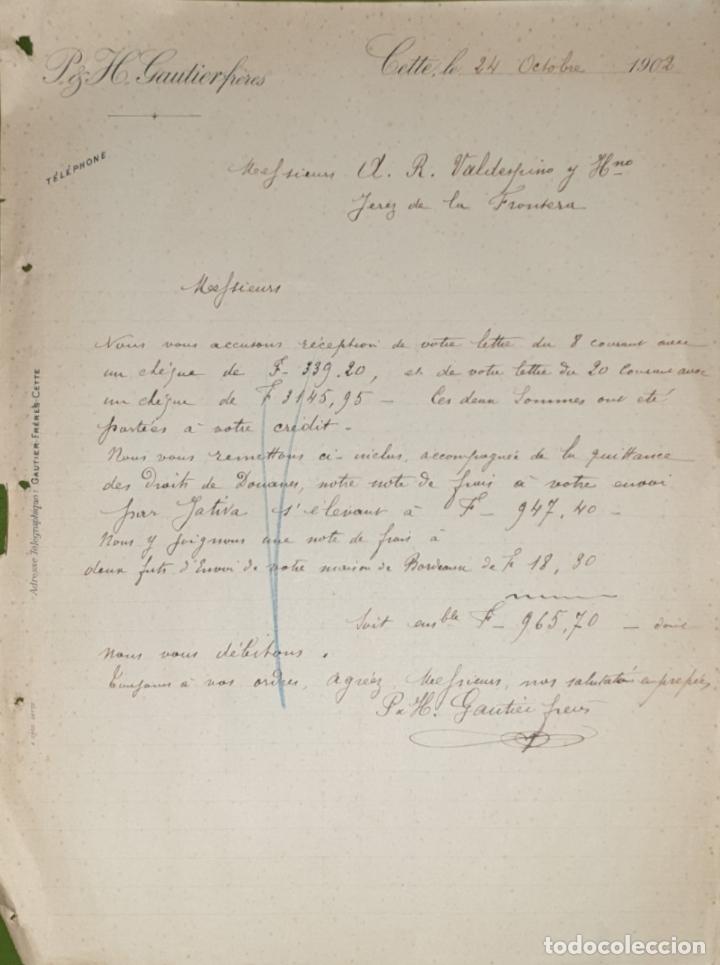 P & H. Gautier frères
Cette, le 24 Octobre 1902
TÉLÉPHONE
Messieurs A. R. Valdespino y Hno
Jerez de la Frontera
Messieurs
Nous vous accusons réception de votre lettre du 8 courant avec
un chèque de F- 339.20, et de votre lettre du 20 Courant avec
un chèque de F 3145,95 - Ces deux Sommes ont été
portées à votre crédit -
Nous vous remettons ci-inclus, accompagnée de la quittance
des Droits de Douanes, notre note de frais à votre envoi
par Jativa s'élevant à F- 947.40 -
Nous y joignons une note de frais à
deux futs d'Envoi de votre maison de Bordeaux de F 18,30
Soit ensble F- 965,70 - dont
Nous vous débitons.
Toujours à vos ordres, agréez Messieurs, nos salutations empressées
P & H. Gautier frères
Adresse Télégraphique: GAUTIER-FRÈRES-CETTE
todocoleccion